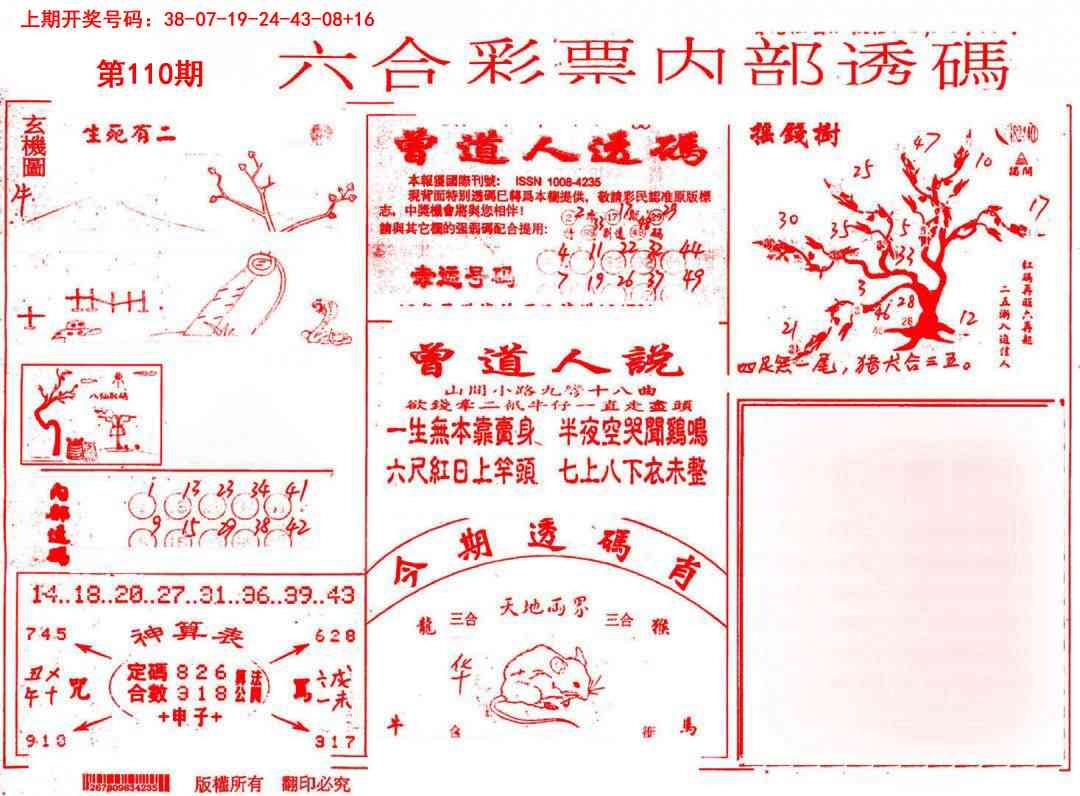 上期开奖号码：38-07-19-24-43-08+16
第110期
六合彩票内部透碼
玄機圖
生死有二
牛
十
八仙取碼
内部透碼
1 13 23 34 41
9 15 29 38 42
14..18..20..27..31..36..39..43
神算表
745
628
定碼826
合數318
算法公開
+申子+
910
317
267809834235
版權所有 翻印必究
曾道人透碼
本報獲國際刊號: ISSN 1008-4235
現背面特別透碼已轉爲本欄提供，敬請彩民認准原版標
志，中獎機會將與您相伴！
請與其它欄的强弱碼配合提用:
幸运号码
4 11 22 32 44
7 19 26 37 49
曾道人説
山間小路九彎十八曲
欲錢牽二祇牛仔一直走盡頭
一生無本靠賣身、半夜空哭聞鷄鳴
六尺紅日上竿頭 七上八下衣未整
今期透碼肖
天地両界
龍 三合
三合 猴
华
牛 合
衝 馬
摇錢樹
47
25
10
17
30
35
5
33
3
46
28
12
21
紅碼再旺六再起
二五漸入迫信人
四足無一尾，猪犬合三五。